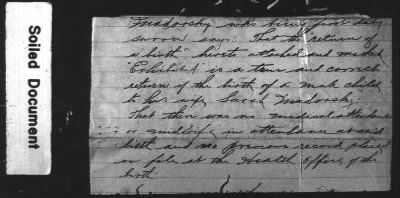 Soiled Document
Madovsky who being first duly
sworn says: That the "return of
a birth" hereto attached and marked
"Exhibit A" is a true and correct
return of the birth of a male child
to his wife Sarah Madovsky:
That there was no medical attendance
or midwife in attendance at said
birth and no previous record placed
on file at the Health Office, of the
birth